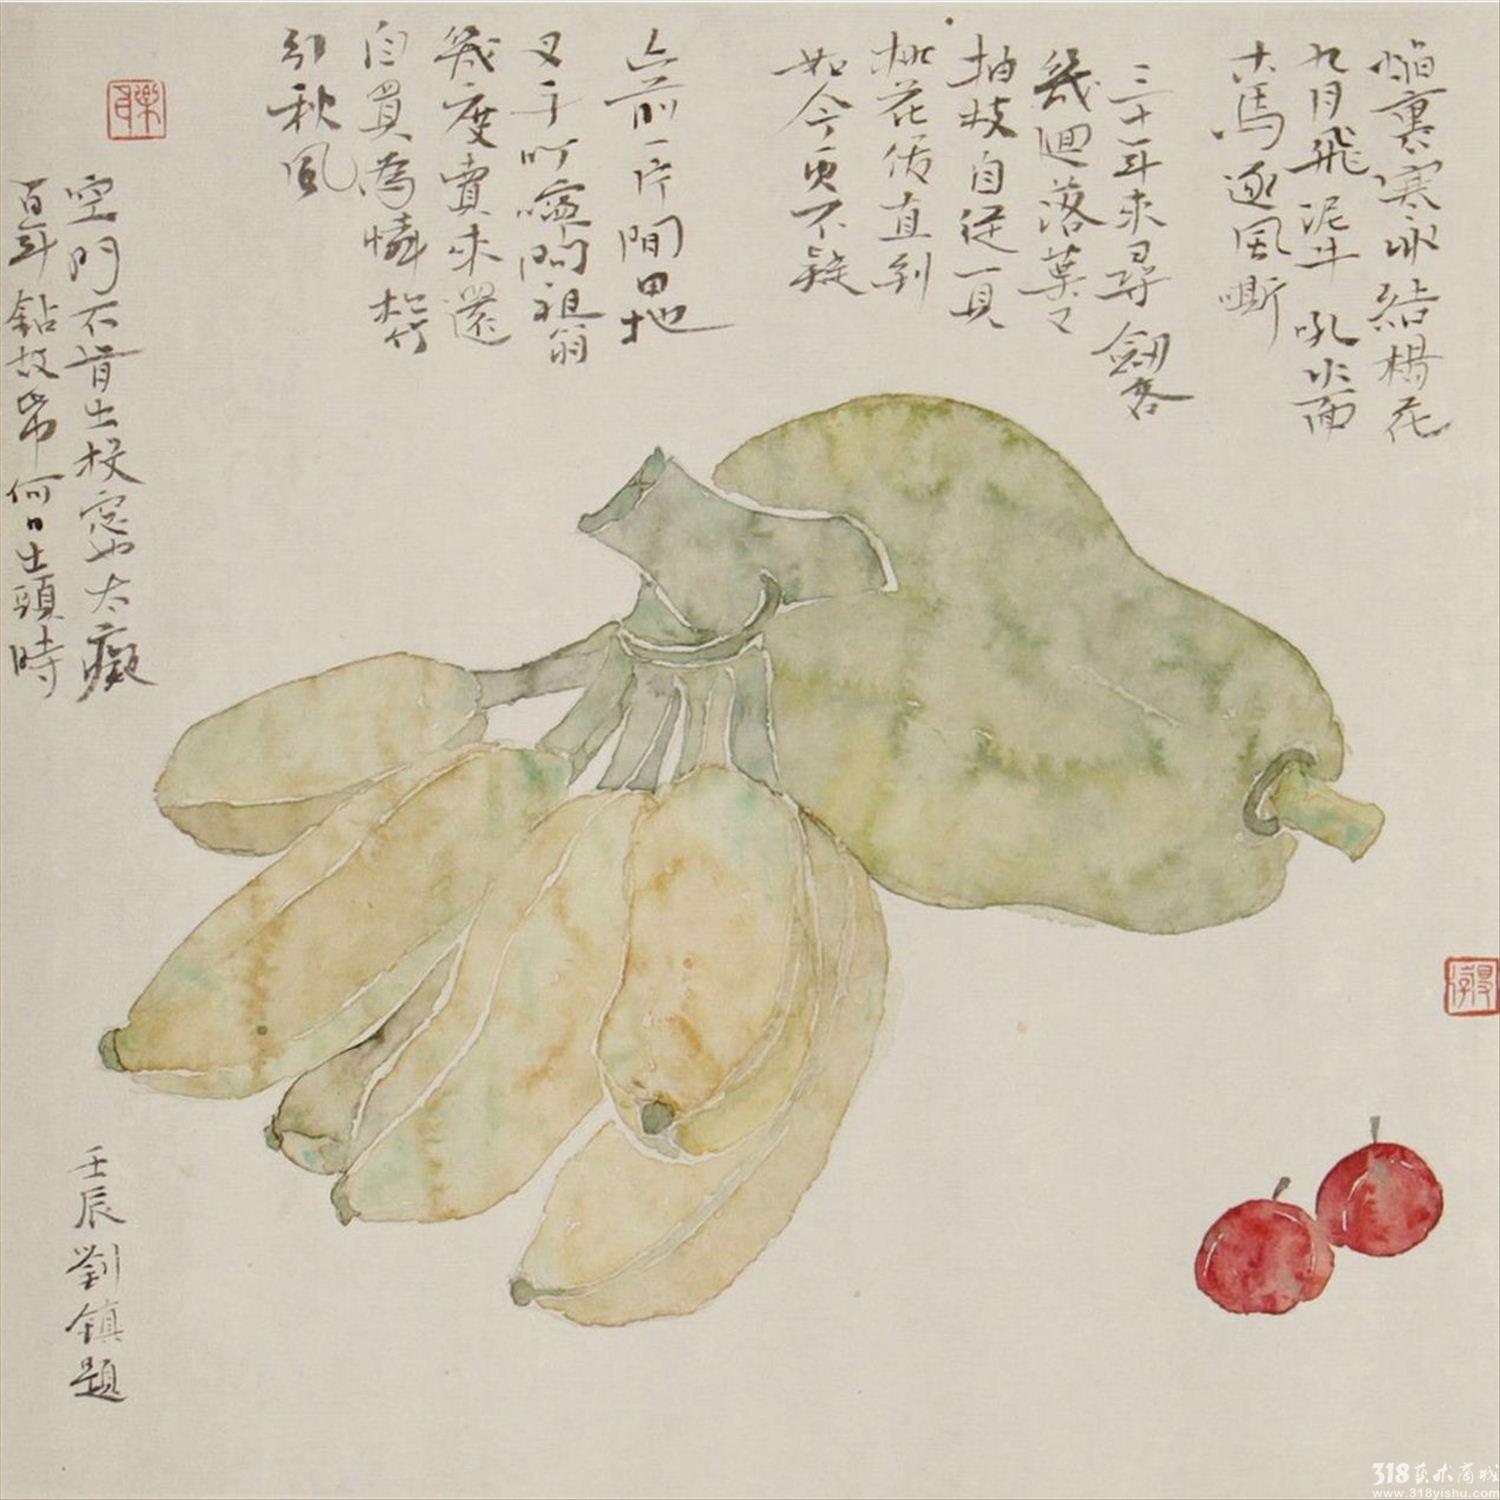 焰裏寒冰結楊花
九月飛泥牛吼水面
木馬逐風嘶
三十年來尋劍客
幾迴落葉又
抽枝自從一見
桃花後直到
如今更不疑
山前一片閒田地
叉手叮嚀問祖翁
幾度賣來還
自買為憐松竹
引秋風
空門不肯出投窓也太癡
百年鉆故帋何日出頭時
壬辰劉鎮題
318艺术商城
www.318yishu.com